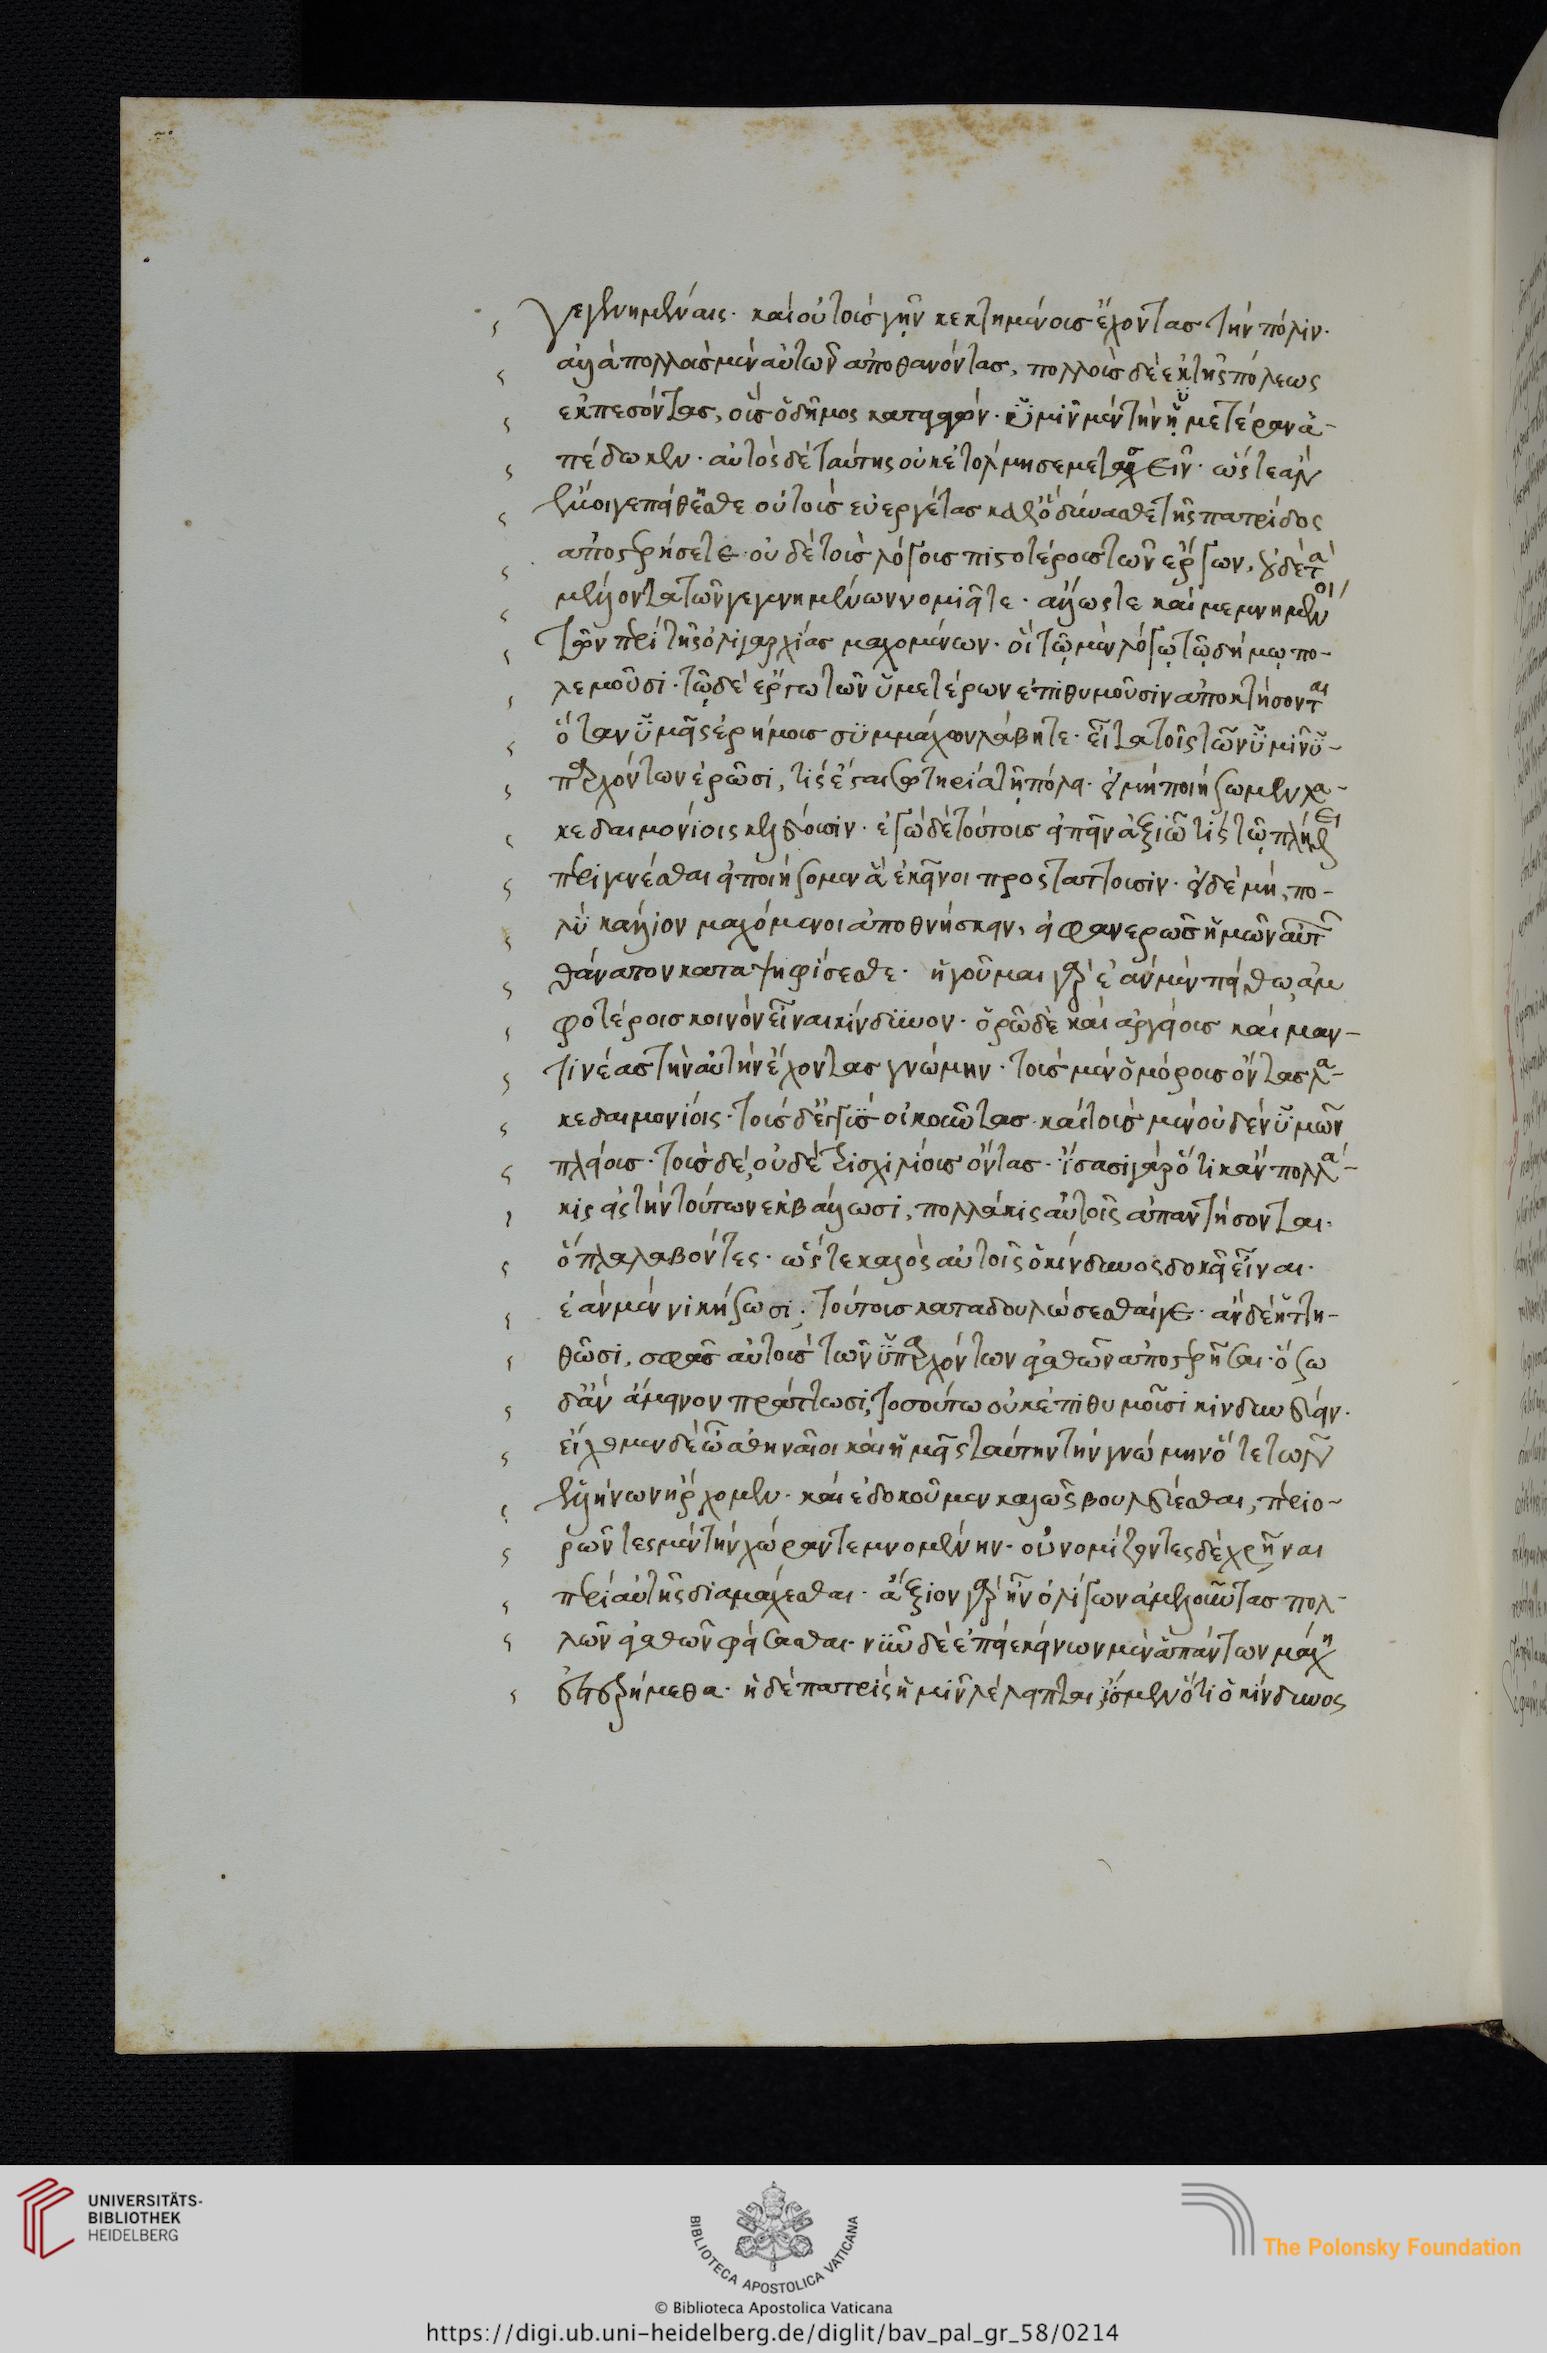 γεγενημέναις· καὶ οὐ τοὺς γῆν κεκτημένους ἔχοντας τὴν πόλιν·
ἀλλὰ πολλοὺς μὲν αὐτῶν ἀποθανόντας, πολλοὺς δὲ ἐκ τῆς πόλεως
ἐκπεσόντας, οὓς ὁ δῆμος καταγαγών· ὑμῖν μὲν τὴν ἡμετέραν ἀ-
πέδωκεν· αὐτὸς δὲ ταύτης οὐκ ἐτόλμησε μετασχεῖν· ὥστε ἂν
ἔμοιγε πείθησθε οὐ τοὺς εὐεργέτας καθ' ὃ δύνασθε τῆς πατρίδος
ἀποστερήσετε· οὐδὲ τοὺς λόγους πιστοτέρους τῶν ἔργων, οὐδὲ τὰ
μέλλοντα τῶν γεγενημένων νομιεῖτε· ἄλλως τε καὶ μεμνημένοι
τῶν περὶ τῆς ὀλιγαρχίας μαχομένων· οἳ τῷ μὲν λόγῳ τῷ δήμῳ πο-
λεμοῦσι· τῷ δὲ ἔργω τῶν ὑμετέρων ἐπιθυμοῦσιν ἀποκτήσονται
ὅταν ὑμᾶς ἐρήμους συμμάχων λάβητε· εἶτα τοῖς τῶν ὑμῖν ὑ-
παρχόντων ἐρῶσι, τίς ἔσται σωτηρία τῇ πόλει· εἰ μὴ ποιήσωμεν λα-
κεδαιμόνιοις κελεύουσιν· ἐγὼ δὲ τούτους εἰπεῖν ἀξιῶ τίς τῷ πλήθει
περιγενέσθαι εἰ ποιήσομεν ἃ ἐκεῖνοι προστάττουσιν· εἰ δὲ μή, πο-
λὺ κάλλιον μαχόμενοι ἀποθνήσκειν, ἢ φανερῶς ἡμῶν αὐτῶν
θάνατον καταψηφίσεσθε· ἡγοῦμαι γὰρ ἐὰν μὲν πείθω, ἀμ
φοτέροις κοινὸν εἶναι κίνδυνον· ὁρῶ δὲ καὶ ἀργείους καὶ μαν-
τινέας τὴν αὐτὴν ἔχοντας γνώμην· τοὺς μὲν ὁμόρους ὄντας λα-
κεδαιμονίοις· τοὺς δ' ἐγγὺς οἰκοῦντας· καὶ τοὺς μὲν οὐδὲν ὑμῶν
πλείους· τοὺς δὲ, οὐδὲ τρισχιλίους ὄντας· ἴσασι γὰρ ὅτι κἂν πολλά-
κις εἰς τὴν τούτων ἐκβάλλωσι, πολλάκις αὐτοῖς ἀπαντήσονται·
ὅπλα λαβόντες· ὥστε καλὸς αὐτοῖς ὁ κίνδυνος δοκεῖ εἶναι·
ἐὰν μὲν νικήσωσι, τούτους καταδουλώσεσθαί γε· ἂν δὲ ἡττη-
θῶσι, σφᾶς αὐτοὺς τῶν ὑπαρχόντων ἀγαθῶν ἀποστερῆσαι· ὅσω
δ' ἂν ἄμεινον πράττωσι, τοσούτω οὐκ ἐπιθυμοῦσι κινδυνεύειν·
εἴχομεν δὲ ὦ ἀθηναῖοι καὶ ἡμεῖς ταύτην τὴν γνώμην ὅτε τῶν
ἑλλήνων ἤρχομεν· καὶ ἐδοκοῦμεν καλῶς βουλεύεσθαι, περιο-
ρῶντες μὲν τὴν χώραν τεμνομένην· οὐ νομίζοντες δὲ χρῆναι
περὶ αὐτῆς διαμάχεσθαι· ἄξιον γὰρ ἦν ὀλίγων ἀμελοῦντας πολ-
λῶν ἀγαθῶν φείσασθαι· νῦν δὲ ἐπεὶ ἐκείνων μὲν ἁπάντων μάχη
ἐστερήμεθα· ἡ δὲ πατρὶς ἡμῖν λέλειπται, ἴσμεν ὅτι ὁ κίνδυνος
UNIVERSITÄTS-
BIBLIOTHEK
HEIDELBERG
BIBLIOTECA APOSTOLICA VATICANA
The Polonsky Foundation
© Biblioteca Apostolica Vaticana
https://digi.ub.uni-heidelberg.de/diglit/bav_pal_gr_58/0214